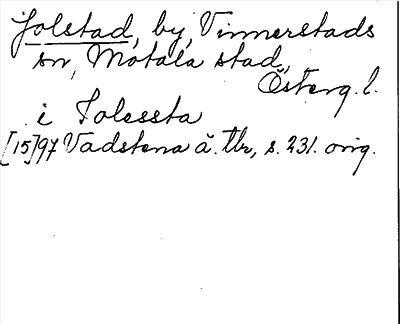 Jolstad, by, Vinnerstads
sn, Motala stad,
Österg. l.
i Jolessta
[15]97 Vadstena ä. tbr, s. 231. orig.